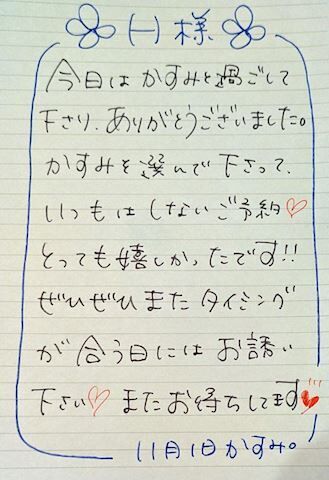 H様
今日はかすみと過ごして
下さり、ありがとうございました。
かすみを選んで下さって、
いつもはしないご予約♡
とっても嬉しかったです!!
ぜひぜひまたタイミング
が合う日にはお誘い
下さい♡またお待ちしてます♥
11月1日かすみ。